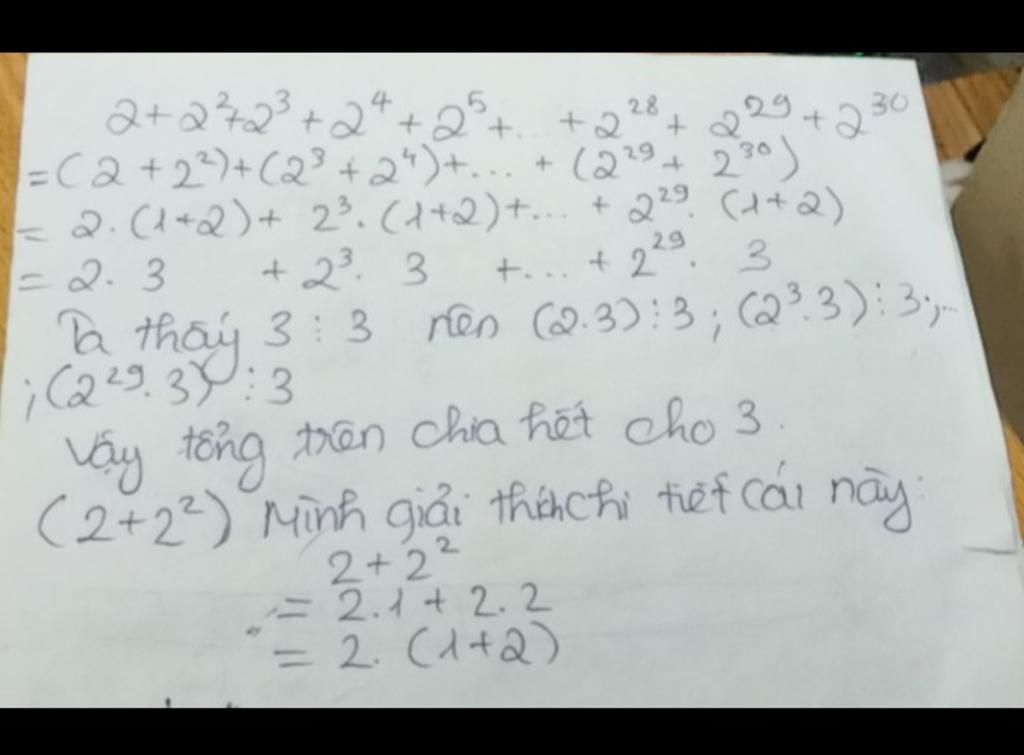 2+2²+2³+2⁴+2⁵+...+2²⁸+2²⁹+2³⁰
=(2+2²)+(2³+2⁴)+...+(2²⁹+2³⁰)
=2.(1+2)+2³.(1+2)+...+2²⁹.(1+2)
=2.3+2³.3+...+2²⁹.3
Ta thấy 3⋮3 nên (2.3)⋮3; (2³.3)⋮3;...
;(2²⁹.3)⋮3
Vậy tổng trên chia hết cho 3.
(2+2²) Mình giải thích chi tiết cái này:
2+2²
=2.1+2.2
=2.(1+2)